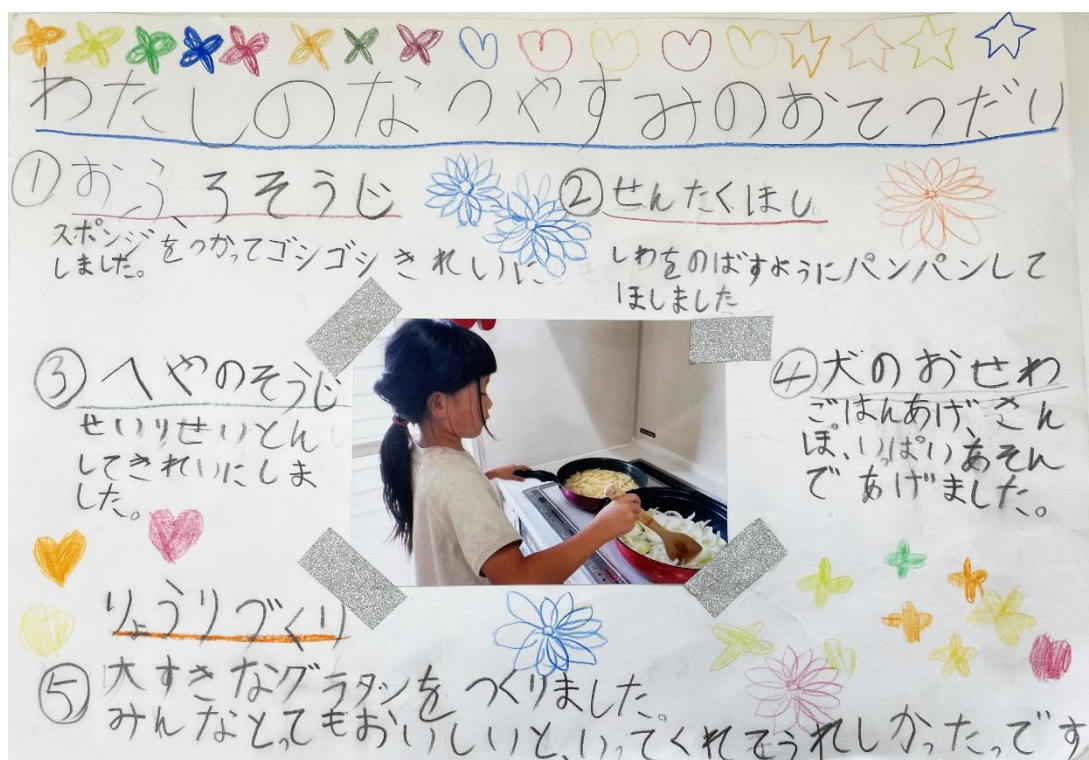 わたしのなつやすみのおてつだい
①おふろそうじ
スポンジをつかってゴシゴシきれいに
しました。
②せんたくほし
しわをのばすようにパンパンして
ほしました
③へやのそうじ
せいりせいとん
してきれいにしま
した。
④犬のおせわ
ごはんあげ、さん
ぽ、いっぱいあそん
であげました。
りょうりづくり
⑤大すきなグラタンをつくりました。
みんなとってもおいしいと、いってくれてうれしかったっです